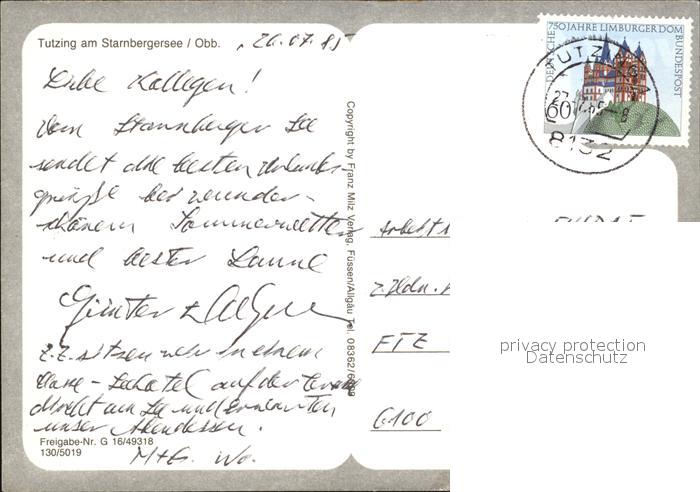 Tutzing am Starnbergersee / Obb.
26.07.85
Liebe Kollegen!
Vom Starnberger See
sendet die besten Urlaubs-
grüße bei wunder-
schönem Sommerwetter
und bester Laune
Günter
z.Z. sitzen wir in einem
Klasse - Seehotel auf der Terrasse
direkt am See und erwarten
unser Abendessen.
M+G. Wo.
Freigabe-Nr. G 16/49318
130/5019
Copyright by Franz Milz Verlag, Füssen/Allgäu Tel. 08362/
DEUTSCHE BUNDESPOST
750 JAHRE LIMBURGER DOM
60
TUTZING
27.-7.85-8
8132
z.Hdn.
FTZ
6100
privacy protection
Datenschutz